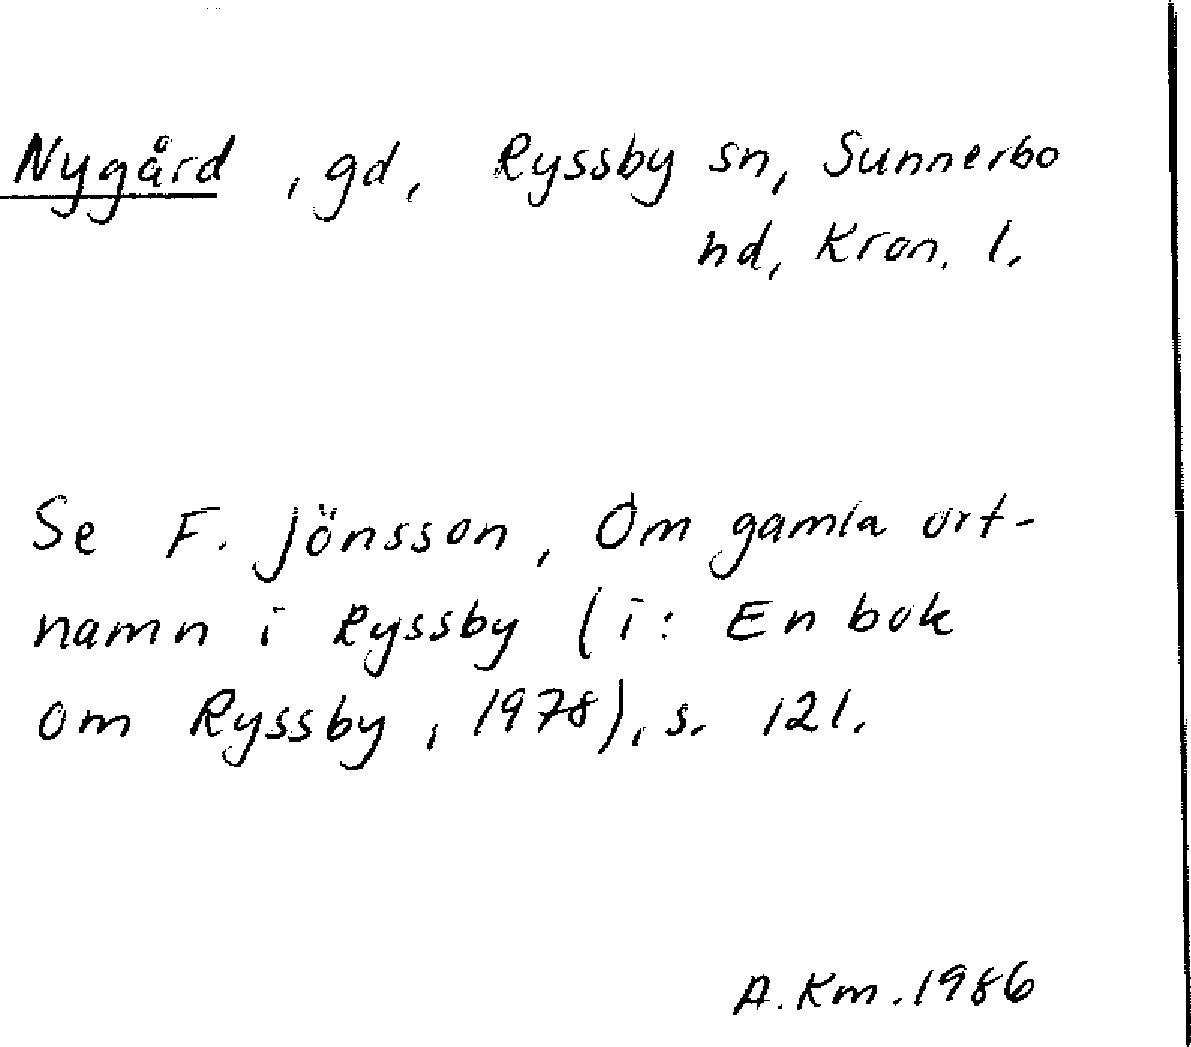 Nygård, gd, Ryssby sn, Sunnerbo
hd, Kron. l.
Se F. Jönsson, Om gamla ort-
namn i Ryssby (i: En bok
om Ryssby, 1978), s. 121.
A. Km. 1986